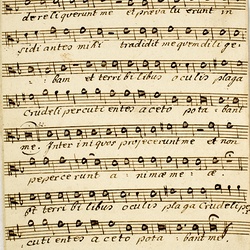 dereliquerunt me et prævaluerunt in
sidiantes mihi tradidit me quem dilige
bam et terribilibus oculis plaga
crudeli percutientes aceto potabant
me. Inter iniquos projecerunt me et non
pepercerunt animæ meæ
et terribilibus oculis plaga crudeli per
cutientes aceto potabant me